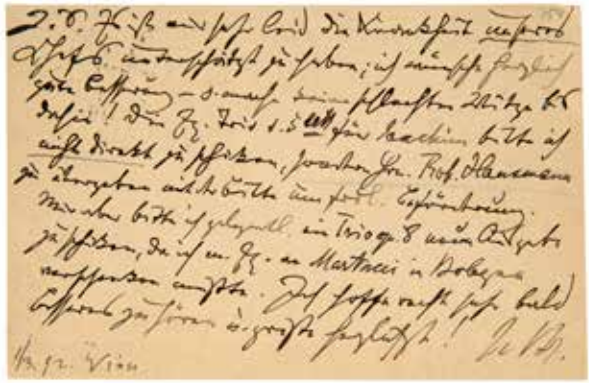 L. S. Es ist mir sehr leid die Krankheit unseres
Chefs unterschätzt zu haben; ich wünsche herzlich
gute Besserung – u. mache keine schlechten Witze bis
dahin! Die Ex. Trio u. 5tett für Joachim bitte ich
nicht direkt zu schicken, sondern Hrn. Prof. Hausmann
zu übergeben mit der Bitte um frdl. Beförderung.
Mir aber bitte ich gelegentl. ein Trio op. 8 neue Ausgabe
zu schicken, da ich m. Ex. an Martucci in Bologna
verschenken mußte. Ich hoffe recht sehr bald
Besseres zu hören u. grüße herzlichst! J. Br.
92. Wien